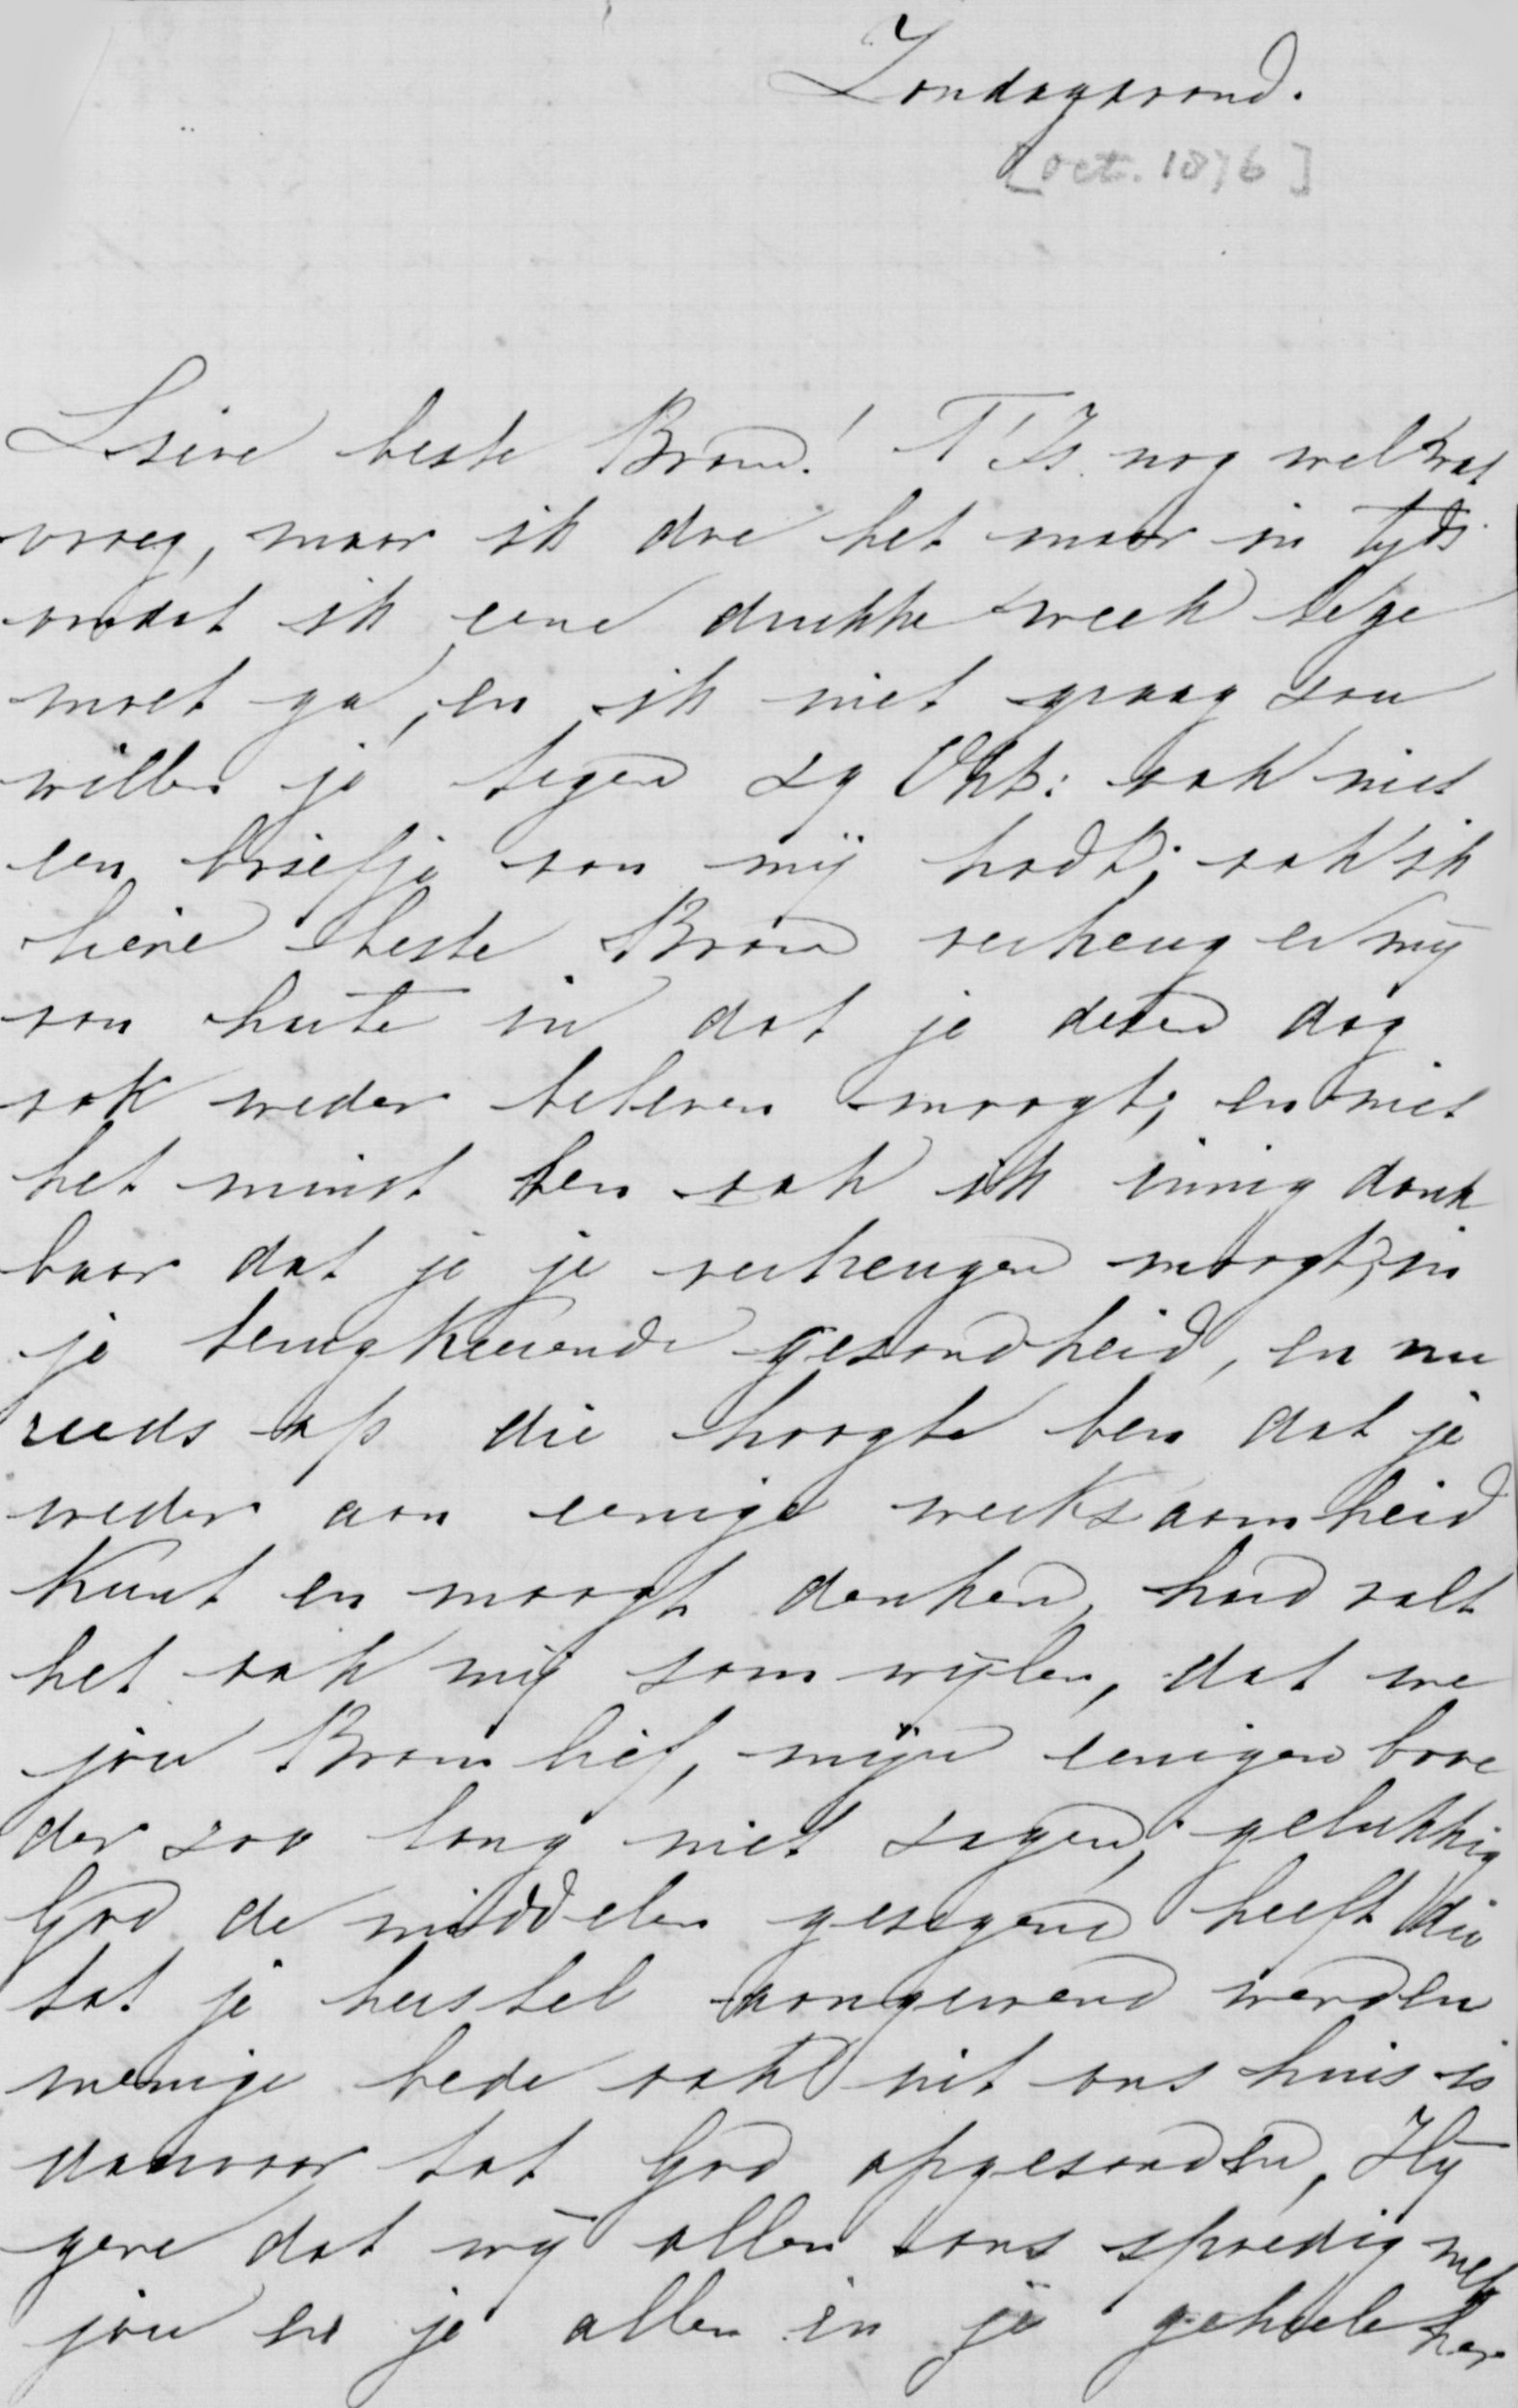 Zondagavond.
[oct. 1876]
Lieve beste Bram! T'Is nog wel wat
vroeg, maar ik doe het maar in tyds
omdat ik eene drukke week tege
moet ga, en ik niet graag zou
willen je tegen 29 Okt: ook niet
een briefje van mij hadt; ook ik
lieve beste Bram verheug er mij
van harte in dat je dezen dag
ook weder beleven moogt, en niet
het minst ben ook ik innig dank
baar dat je je verheugen moogt, in
je terugkeerende gezondheid, en nu
reeds op die hoogte ben dat je
weder aan eenige werkzaamheid
kunt en moogt denken, hard valt
het ook mij somwijlen, dat we
jou Bram lief, mijn eenigen broe
der zoo lang niet zagen, gelukkig
God de middelen gezegend heeft die
tot je herstel aangewend werden
menige bede ook uit ons huis is
daarvoor tot God opgezonden, Hij
geve dat wij allen ons spoedig met
jou en je allen in je geheele her